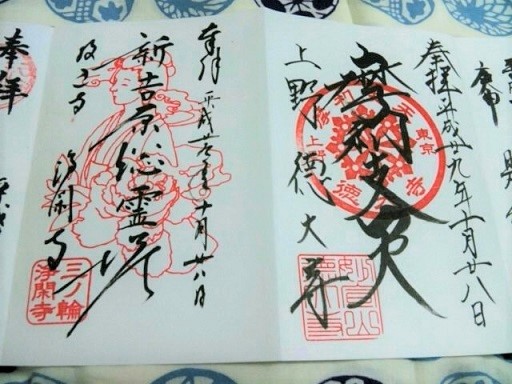 奉拝 平成廿九年十月廿八日
摩利支天
東京
上野徳大寺
奉拝 平成廿九年十月廿八日
新吉原総霊塔
投込寺 浄閑寺
三ノ輪
浄閑寺
奉拝